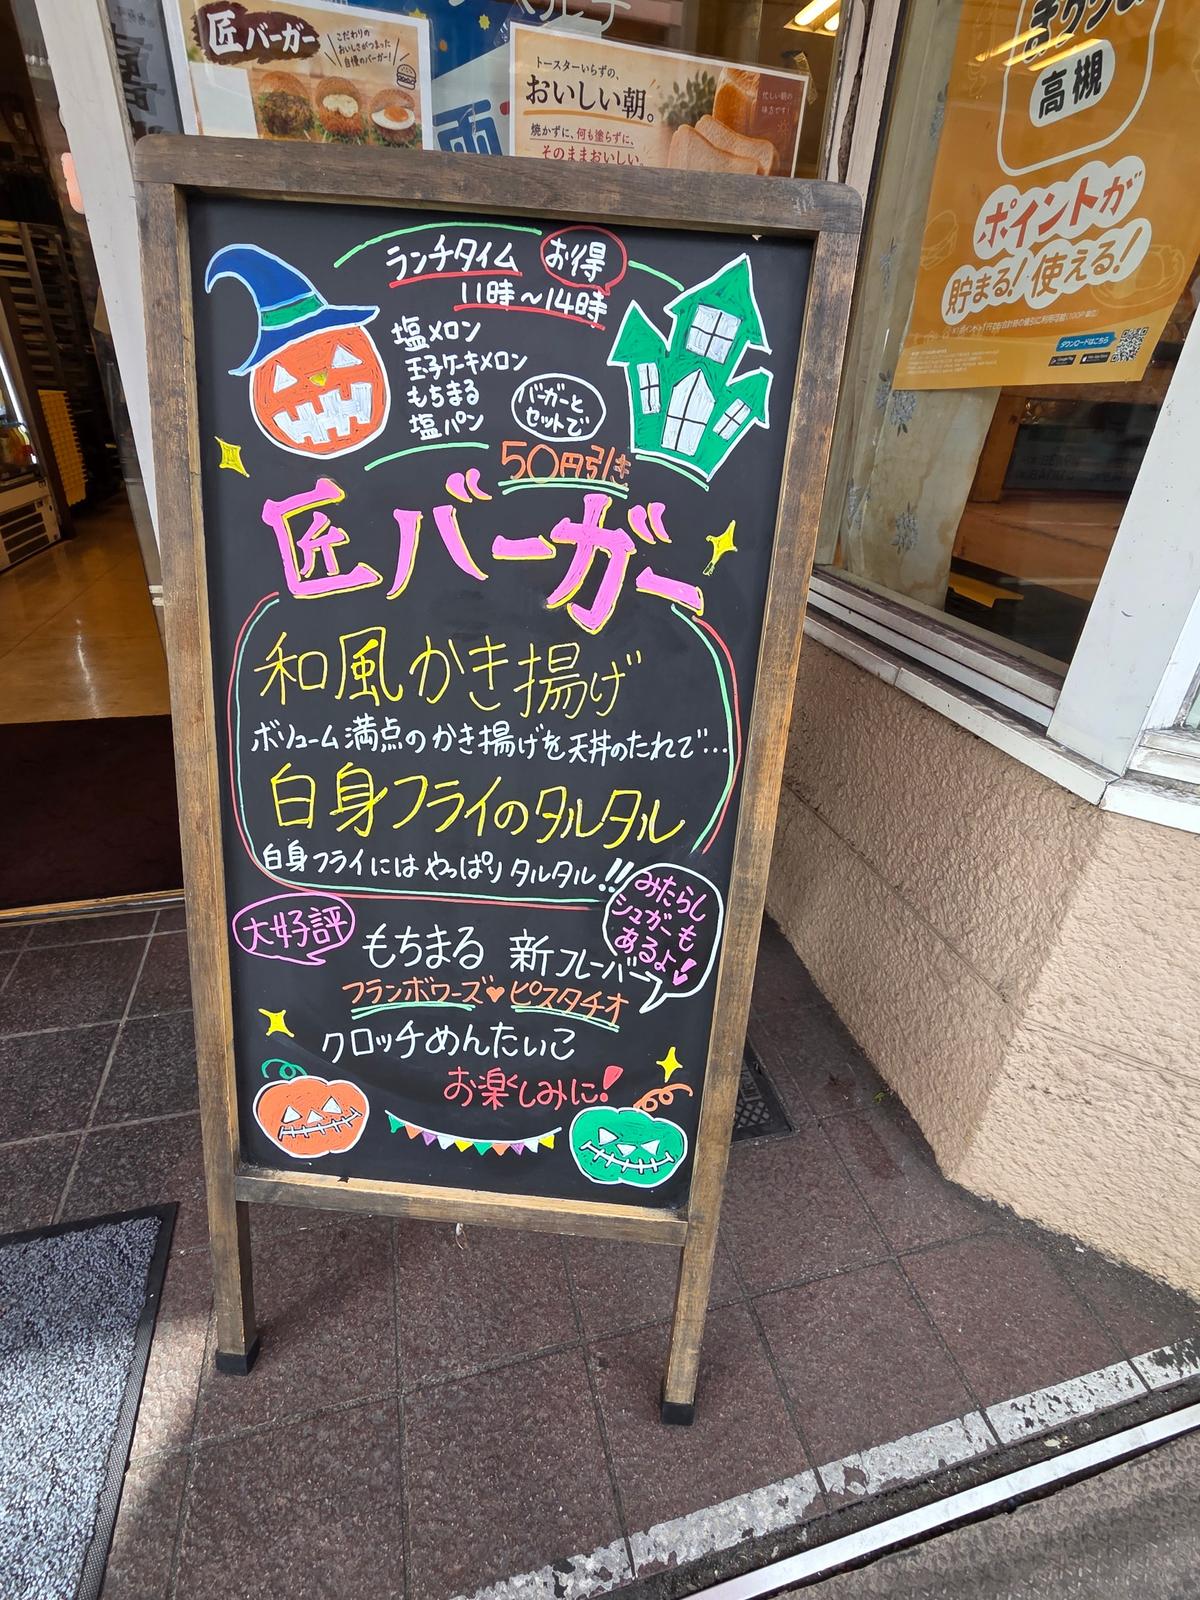 匠バーガー
こだわりの
おいしさがつまった
自慢のバーガー!
トースターいらずの、
おいしい朝。
焼かずに、何も塗らずに、
そのままおいしい。
忙しい朝の
味方です!
高槻
ポイントが
貯まる!使える!
ダウンロードはこちら
ランチタイム お得
11時～14時
塩メロン
玉子ケーキメロン
もちまる
塩パン
バーガーと
セットで
50円引き
匠バーガー
和風かき揚げ
ボリューム満点のかき揚げを天丼のたれで…
白身フライのタルタル
白身フライにはやっぱりタルタル!!
みたらし
シュガーも
あるよ!
大好評
もちまる 新フレーバー
フランボワーズ♥ピスタチオ
クロッチめんたいこ
お楽しみに!